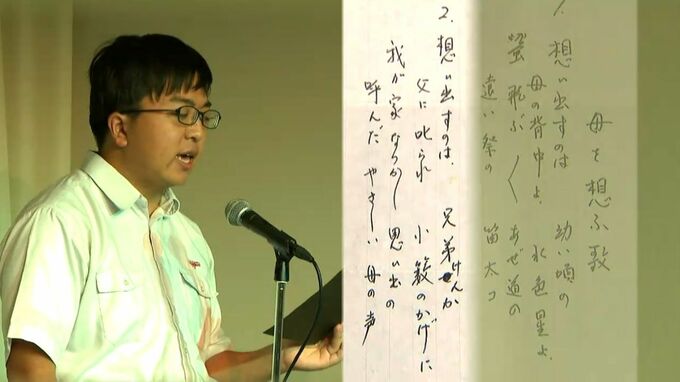 母を想ふ歌
1. 想い出すのは 幼い頃の
母の背中よ 水色星よ
蛍飛ぶ〱 あぜ道の
遠い祭の 笛太コ
2. 想い出すのは、 兄弟けんか
父に叱られ 小籔のかげに
我が家なつかし 思い出の
呼んだ やさしい 母の声